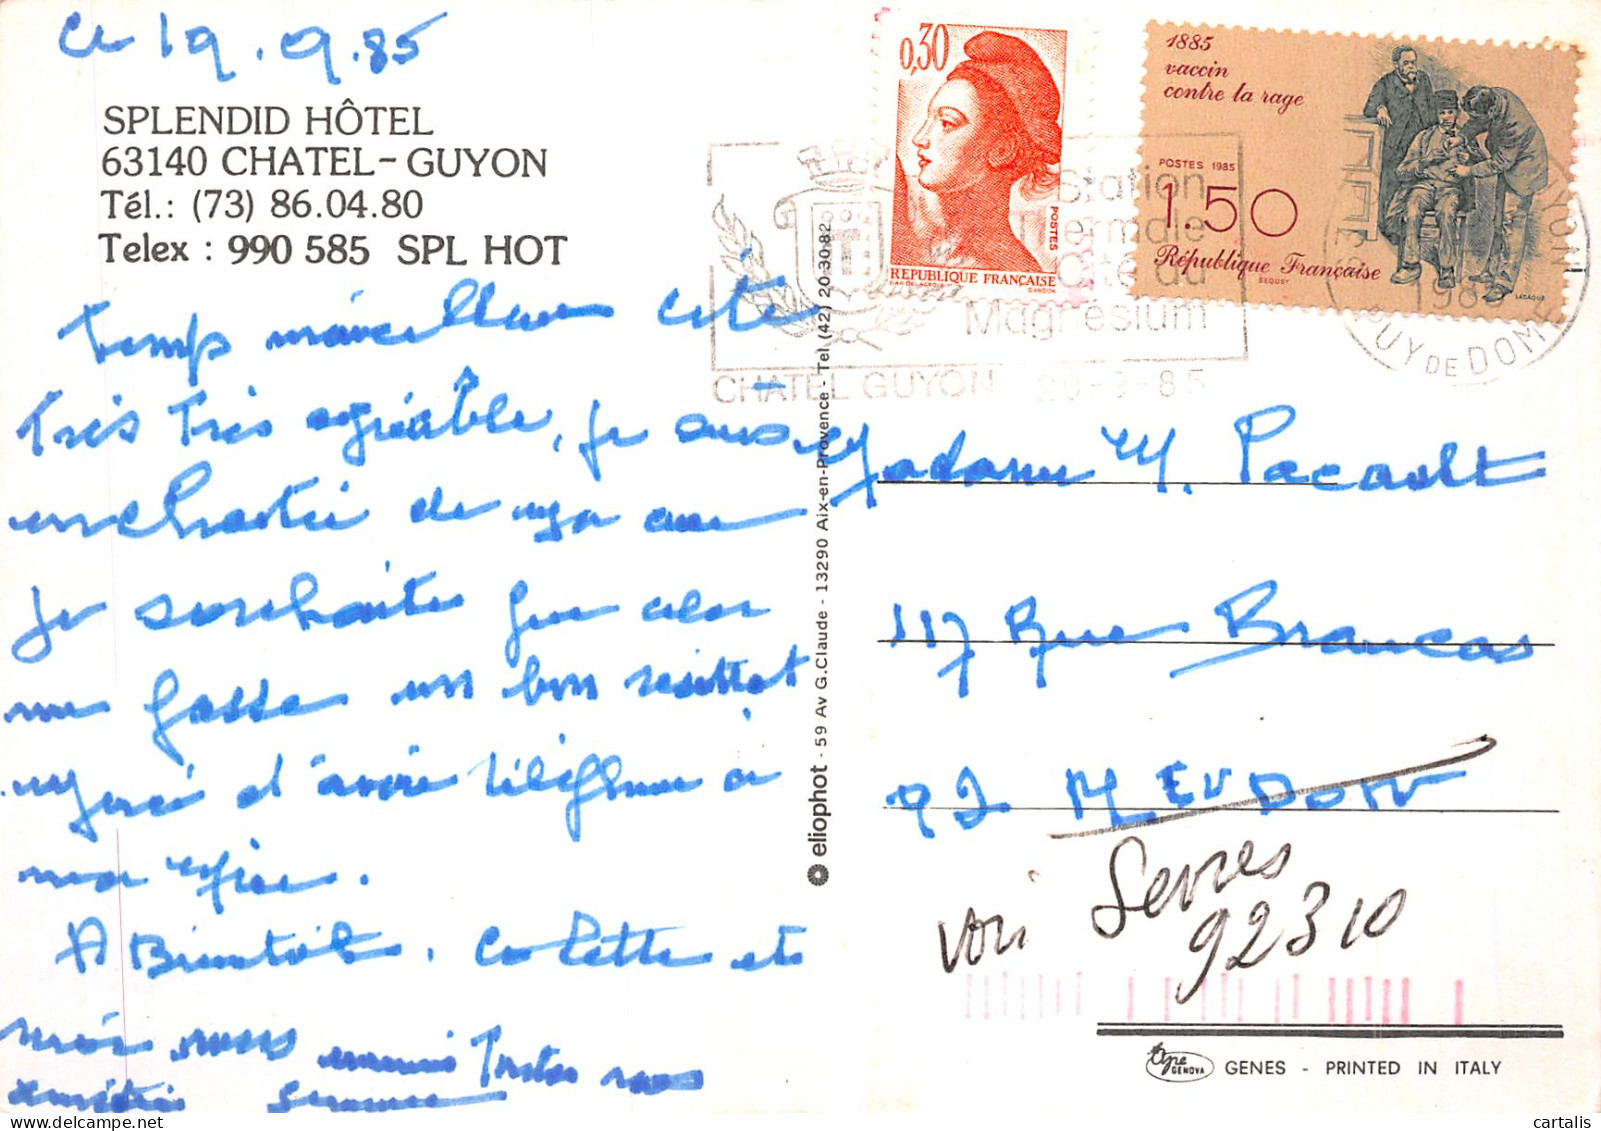 Ce 19.9.85
SPLENDID HÔTEL
63140 CHATEL-GUYON
Tél.: (73) 86.04.80
Telex : 990 585 SPL HOT
Temps merveilleux côté
Très Très agréable, je suis
enchantée de ma cure
Je souhaite que cela
me fasse un bon résultat
Merci d'avoir téléphoné à
A Bientôt. Colette et
moi vous
0,30
POSTES
REPUBLIQUE FRANÇAISE
GANDON
1885
vaccin
contre la rage
POSTES 1985
1.50
République Française
LACAQUE
Station
Thermale
Cité du
Magnésium
CHATEL GUYON 20-9-85
PUY DE DOME
eliophot - 59 Av G.Claude - 13290 Aix-en-Provence - Tel (42) 20 30 82
Madame M. Pacault
117 Rue Brancas
92 MEUDON
voir Sevres
92310
GENOVA
GENES - PRINTED IN ITALY
cartalis | delcampe.net